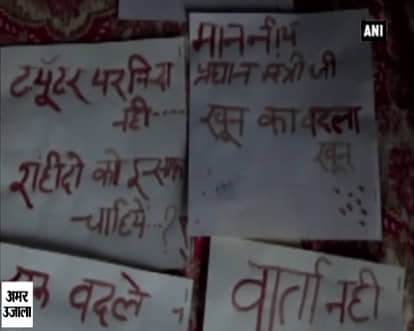 ट्यूटर पर निंदा
नहीं....
शहीदों को इन्साफ
चाहिये...?
माननीय
प्रधान मंत्री जी
खून का बदला
खून
बदले
वार्ता नही
ANI
अमर
उजाला